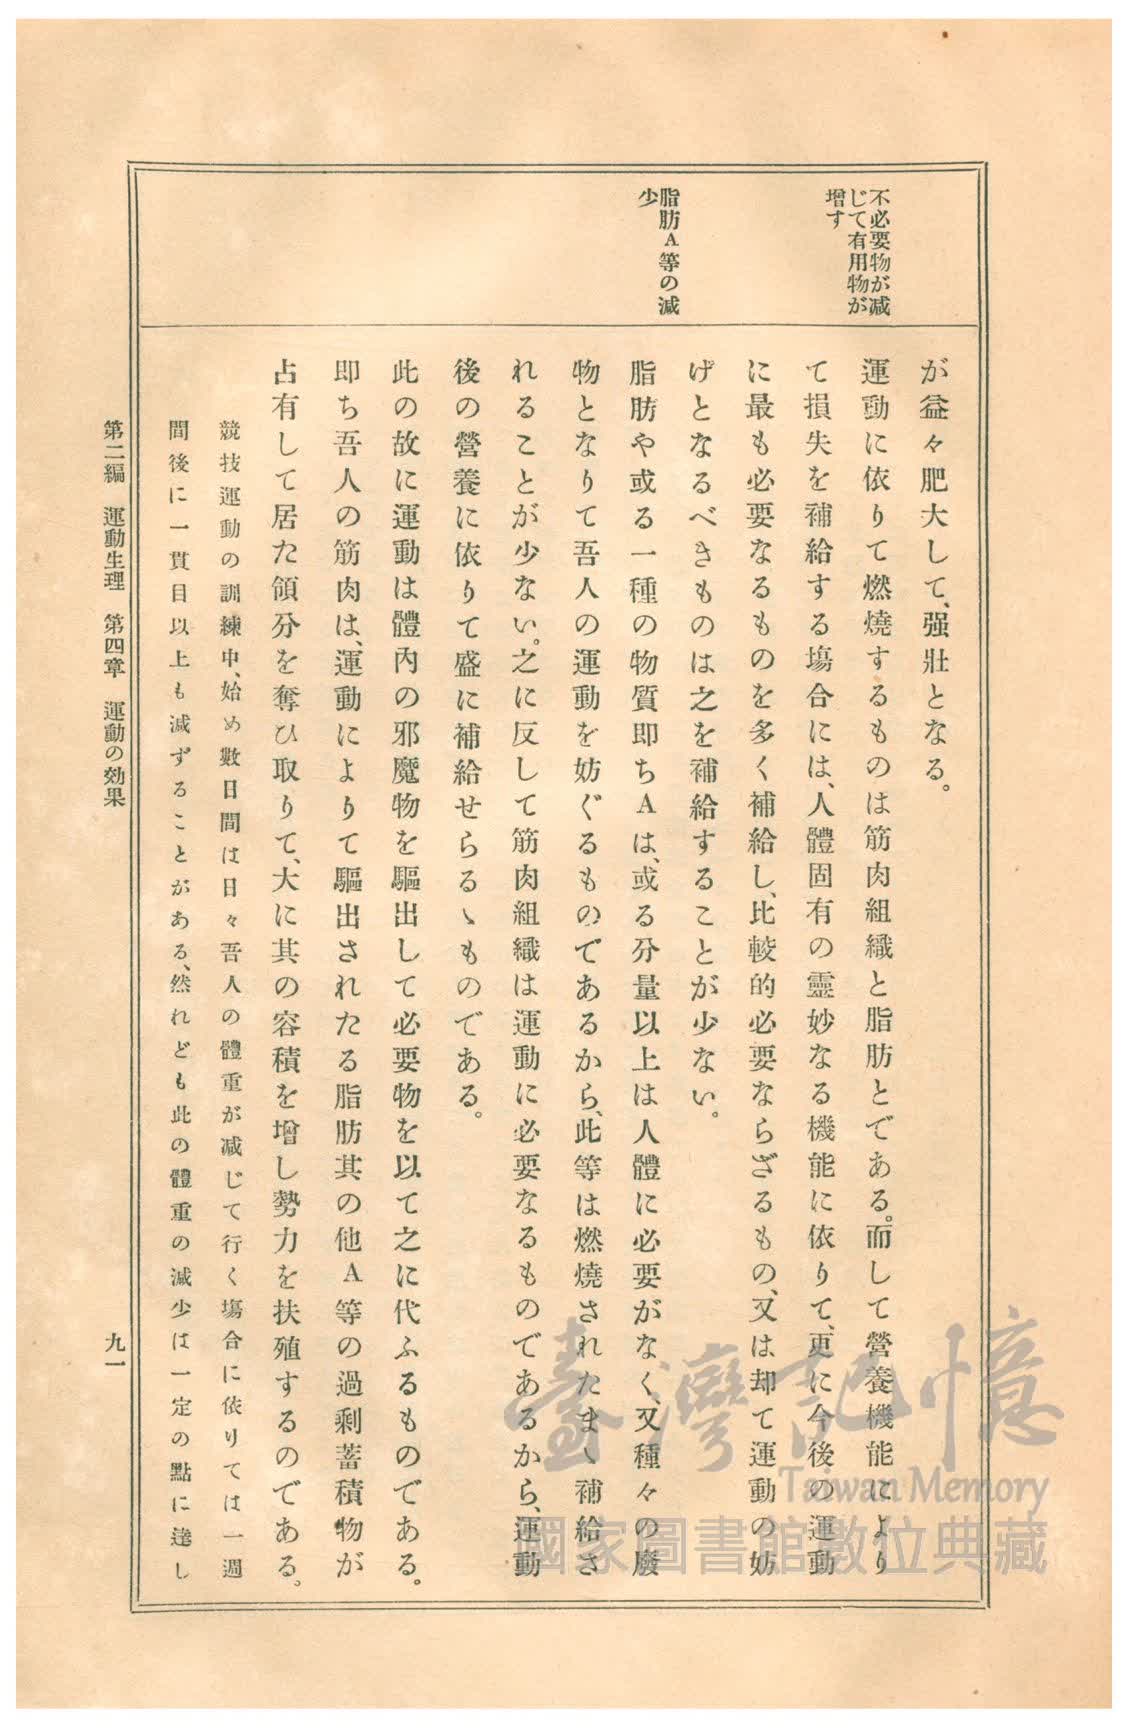 不必要物が減
じて有用物が
增す
脂肪A等の減
少
が益々肥大して、强壯となる。
運動に依りて燃燒するものは筋肉組織と脂肪とである。而して營養機能により
て損失を補給する塲合には、人體固有の靈妙なる機能に依りて、更に今後の運動
に最も必要なるものを多く補給し、比較的必要ならざるもの、又は却て運動の妨
げとなるべきものは之を補給することが少ない。
脂肪や或る一種の物質卽ちAは、或る分量以上は人體に必要がなく、又種々の廢
物となりて吾人の運動を妨ぐるものであるから、此等は燃燒されたまゝ補給さ
れることが少ない。之に反して筋肉組織は運動に必要なるものであるから、運動
後の營養に依りて盛に補給せらるゝものである。
此の故に運動は體內の邪魔物を驅出して必要物を以て之に代ふるものである。
卽ち吾人の筋肉は、運動によりて驅出されたる脂肪其の他A等の過剩蓄積物が
占有して居た領分を奪ひ取りて、大に其の容積を增し勢力を扶殖するのである。
競技運動の訓練中、始め數日間は日々吾人の體重が減じて行く塲合に依りては一週
間後に一貫目以上も減ずることがある、然れども此の體重の減少は一定の點に達し
第二編 運動生理 第四章 運動の効果
九一
臺灣記憶
Taiwan Memory
國家圖書館數位典藏